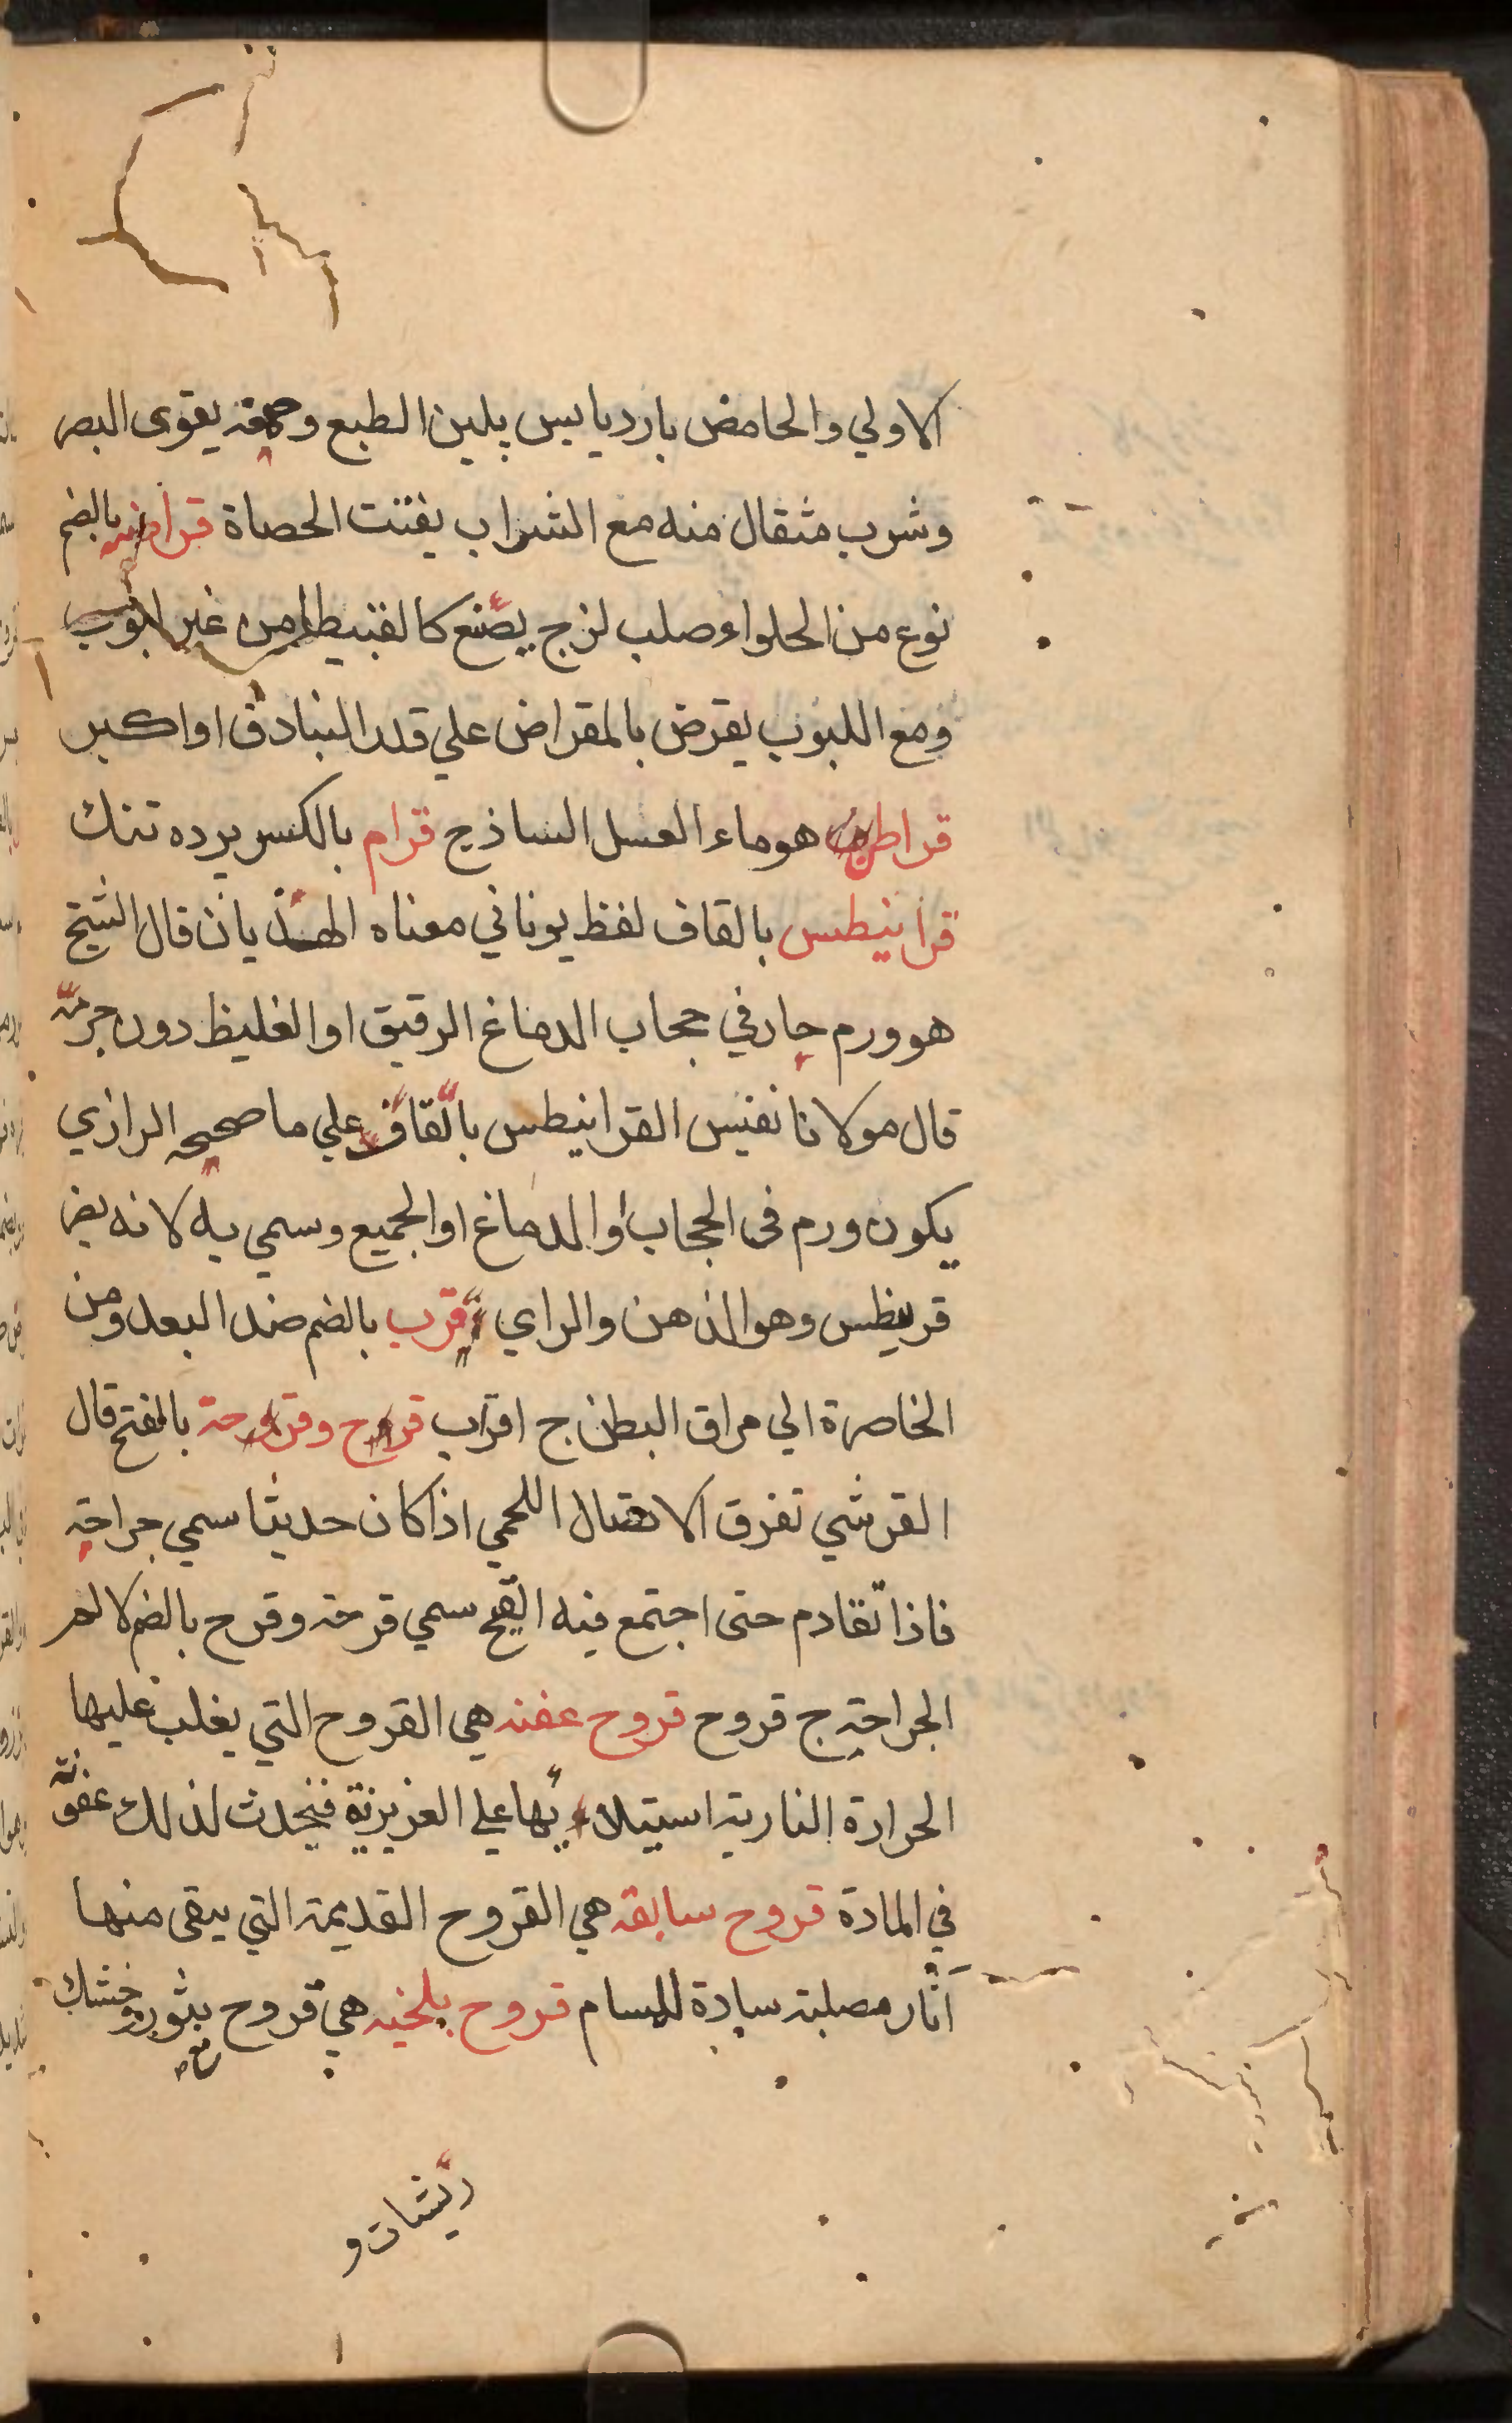 الاولي والحامض بارد يابس يلين الطبع وحمقه يقوى البصر
وشرب مثقال منه مع الشراب يفتت الحصاة قراضه بالضم
نوع من الحلواء صلب لزج يصنع كالقنبيطا من غير لبوب
ومع اللبوب يقرض بالمقراض علي قدر البنادق او اكبر
قراطن هو ماء العسل الساذج قرام بالكسر پرده تنك
قرانيطس بالقاف لفظ يوناني معناه الهذيان قال الشيخ
هو ورم حار في حجاب الدماغ الرقيق او الغليظ دون جرمه
قال مولانا نفيس القرانيطس بالقاف علي ما صححه الرازي
يكون ورم فى الحجاب او الدماغ او الجميع وسمي به لانه يضر
قريطس وهو الذهن والراي قرب بالضم ضد البعد ومن
الخاصرة الي مراق البطن ج اقراب قرح وقرحة بالفتح قال
القرشي تفرق الاتصال اللحمي اذا كان حديثا سمي جراحة
فاذا تقادم حتى اجتمع فيه القيح سمي قرحة وقرح بالضم الم
الجراحة ج قروح قروح عفنه هي القروح التي يغلب عليها
الحرارة النارية استيلائها علي الغريزية فيحدث لذلك عفونة
في المادة قروح سابقه هي القروح القديمة التي يبقى منها
آثار صلبة سادة للمسام قروح بلخيه هي قروح بثور وخشك
ريشات و